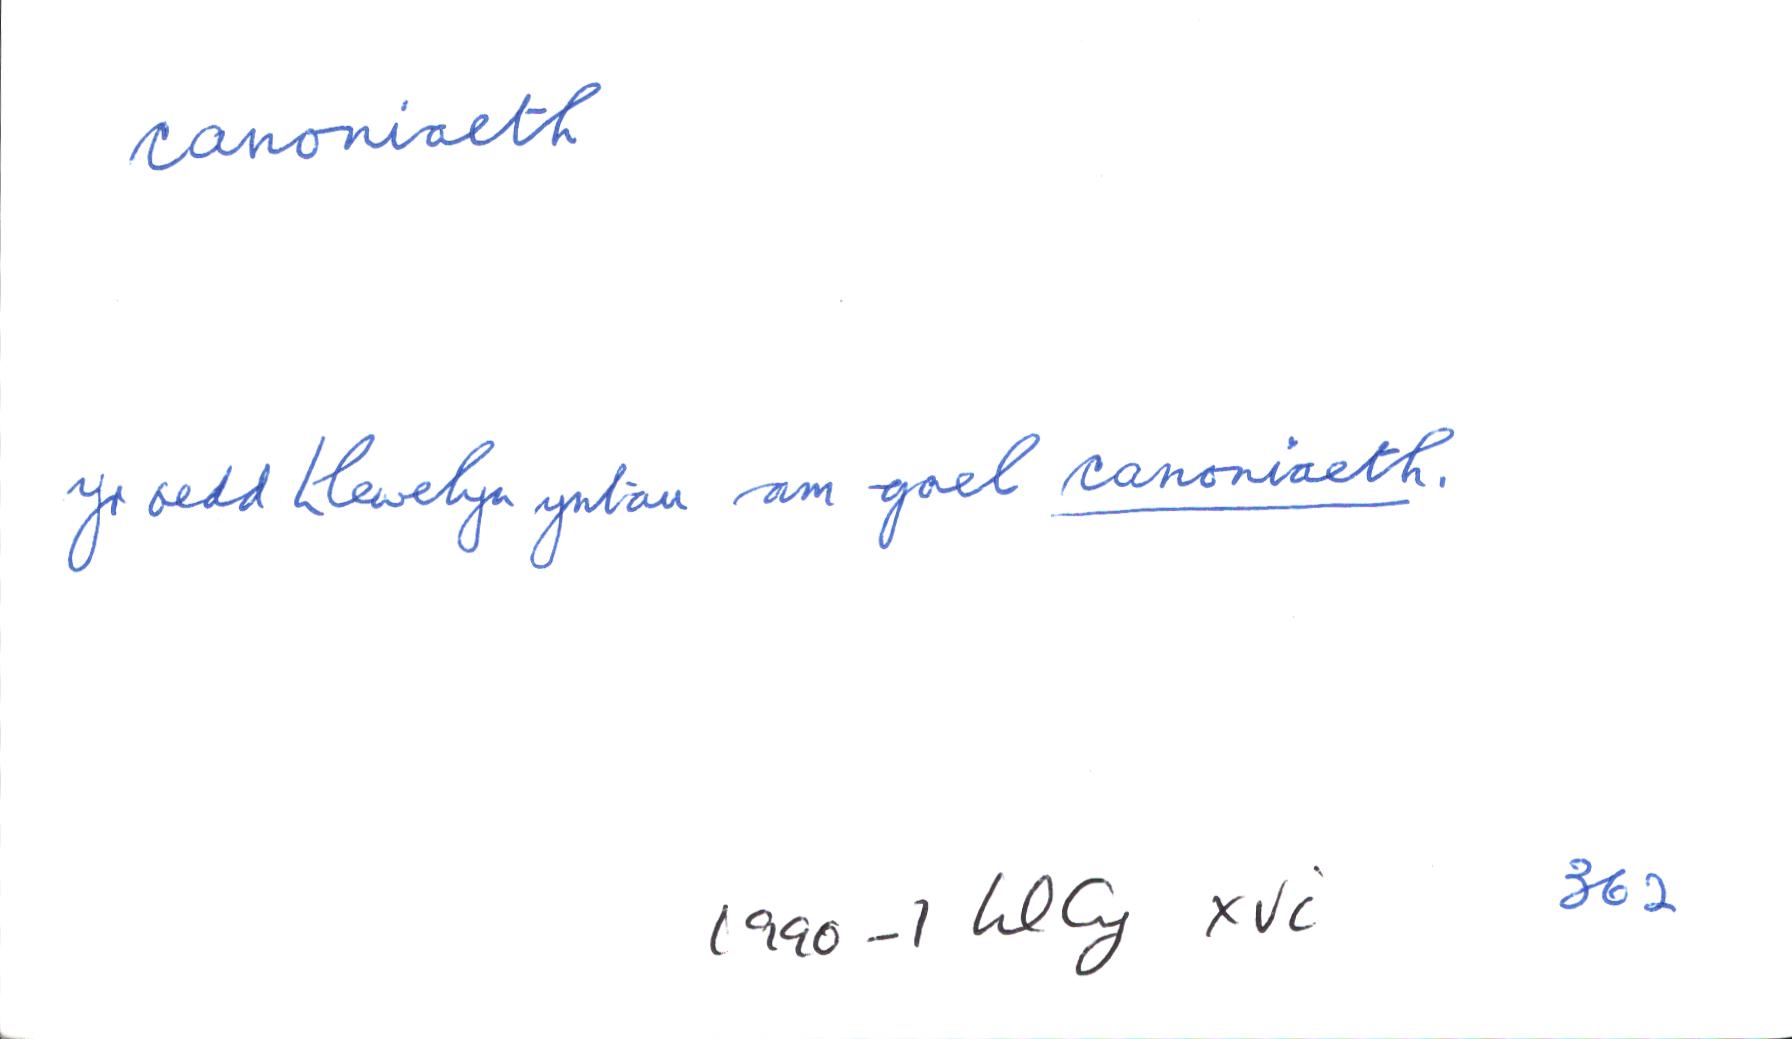 canoniaeth
yr oedd Llewelyn yntau am gael canoniaeth.
1990-1 LlCy xvi 362